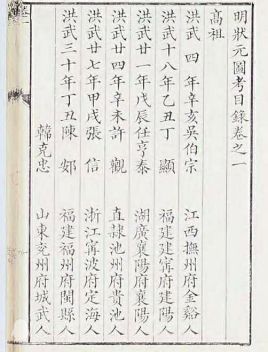 明狀元圖考目錄卷之一
高祖
洪武 四 年辛亥吳伯宗 江西撫州府金谿人
洪武十八年乙丑丁 顯 福建建寧府建陽人
洪武廿一年戊辰任亨泰 湖廣襄陽府襄陽人
洪武廿四年辛未許 觀 直隸池州府貴池人
洪武廿七年甲戌張 信 浙江寧波府定海人
洪武三十年丁丑陳 䢿 福建福州府閩縣人
韓克忠 山東兗州府城武人